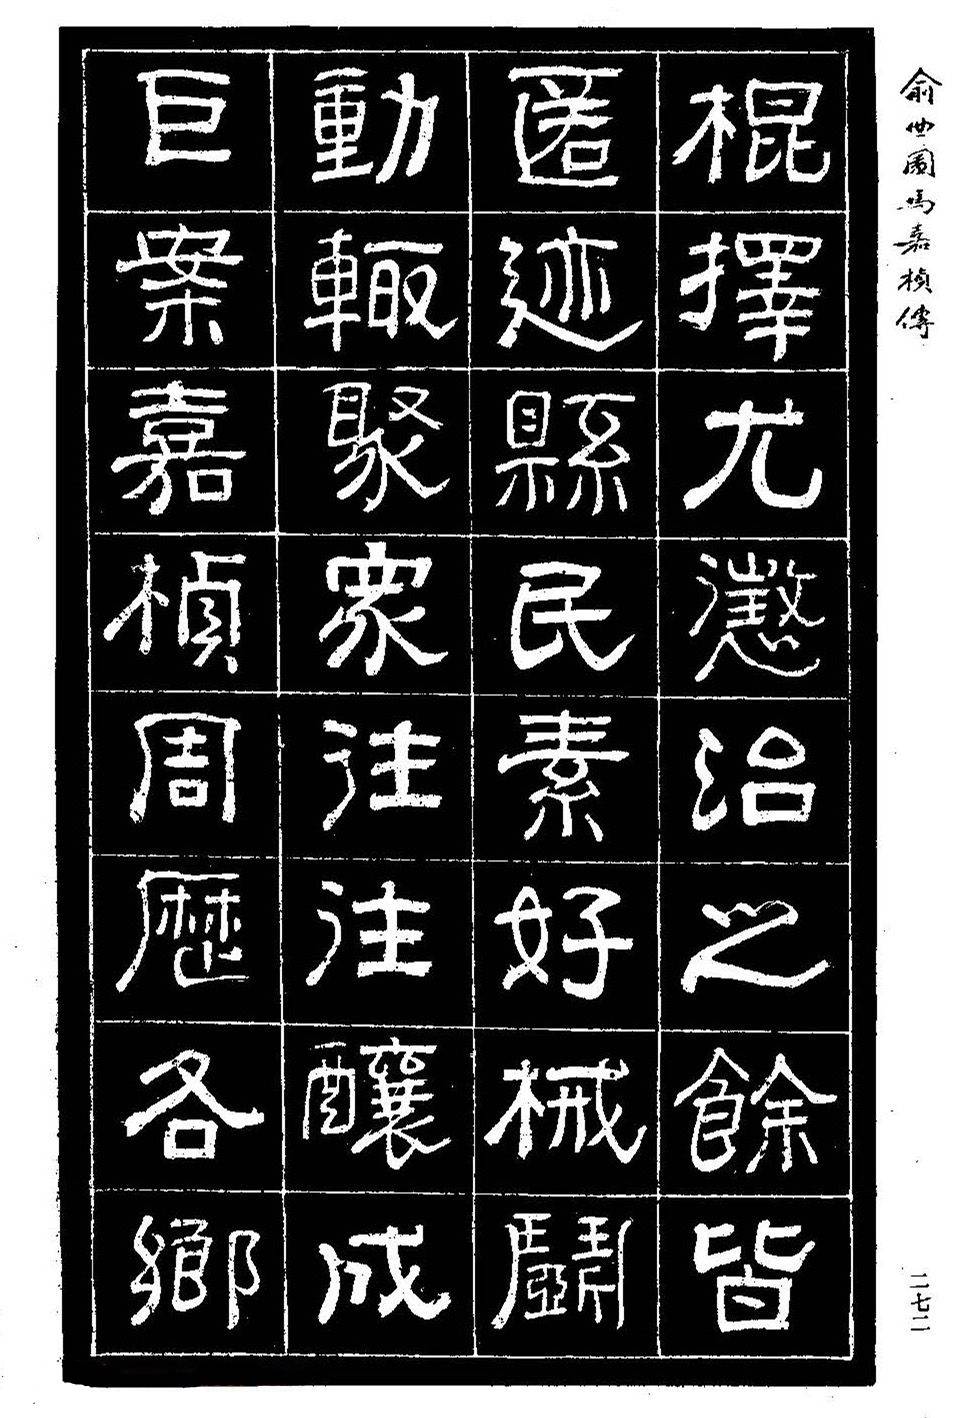 俞曲園馬嘉楨傳
棍擇尤懲治之餘皆
匿迹縣民素好械鬭
動輒聚眾往往釀成
巨案嘉楨周歷各鄉
二七二